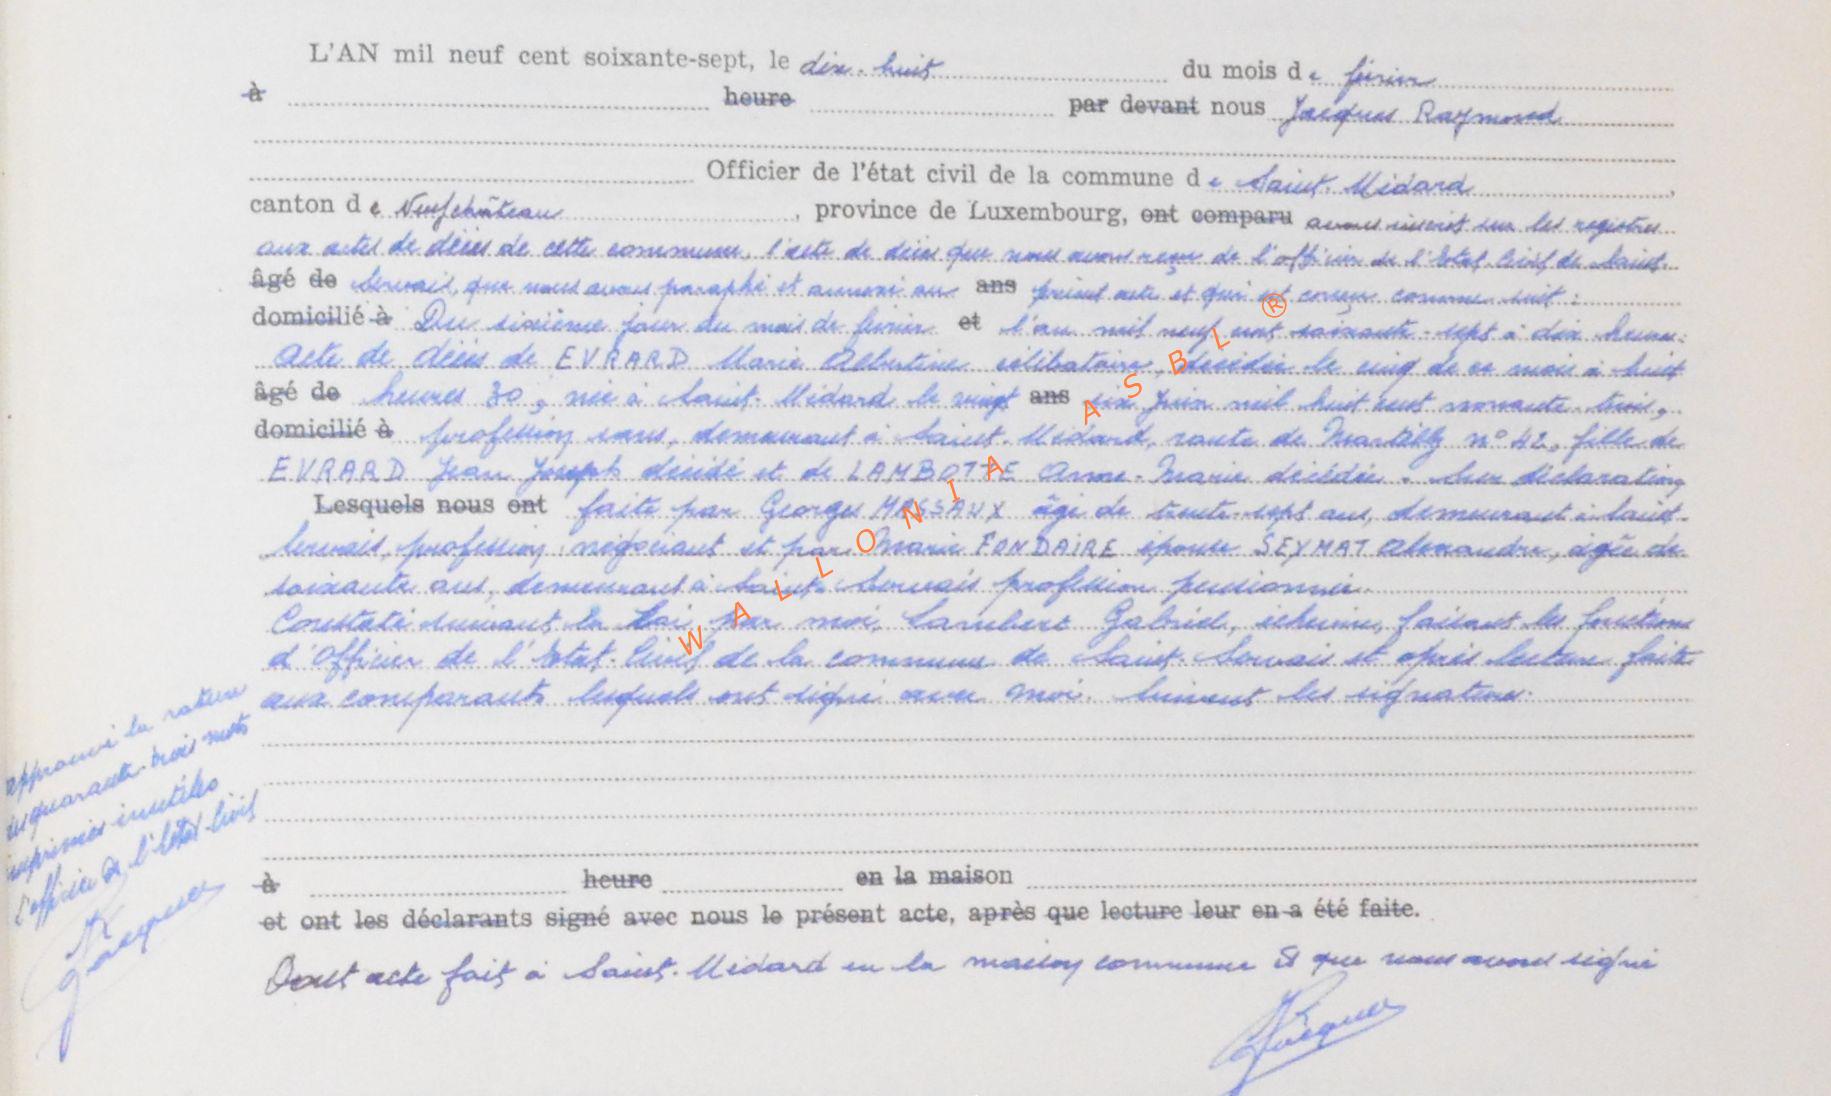 L'AN mil neuf cent soixante-sept, le dix-huit du mois de février
à heure par devant nous Jacques Raymond
Officier de l'état civil de la commune de Saint-Médard,
canton de Neufchâteau, province de Luxembourg, ont comparu avons inscrit sur les registres
aux actes de décès de cette commune, l'acte de décès que nous avons reçu de l'officier de l'Etat Civil de Saint-
âgé de Servais, que nous avons paraphé et annexé au ans présent acte et qui est conçu comme suit :
domicilié à Du sixième jour du mois de février et l'an mil neuf cent soixante-sept à dix heures.
Acte de décès de EVRARD Marie Albertine célibataire, décédée le cinq de ce mois à huit
âgé de heures 30, née à Saint-Médard le vingt ans six juin mil huit cent nonante-trois,
domicilié à profession sans, demeurant à Saint-Médard, route de n° 42, fille de
EVRARD Jean Joseph décédé et de LAMBOTTE Anne-Marie décédée. Sur déclaration
Lesquels nous ont faite par Georges MASSAUX âgé de trente-sept ans, demeurant à Saint-
Servais, profession négociant et par Marie FONDAIRE épouse SEYMAT Alexandre, âgée de
soixante ans, demeurant à Saint-Servais profession pensionnée.
Constaté suivant la Loi, par moi, Lambert Gabriel, échevin, faisant les fonctions
d'Officier de l'Etat-Civil de la commune de Saint-Servais et après lecture faite
aux comparants lesquels ont signé avec moi. Suivent les signatures.
approuvé la rature
de quarante-trois mots
imprimés inutiles
l'officier de l'état-Civil
Jacques
à heure en la maison
et ont les déclarants signé avec nous le présent acte, après que lecture leur en a été faite.
Dont acte fait à Saint-Médard en la maison communale et que nous avons signé
Jacques
WALLONIA ASBL ®